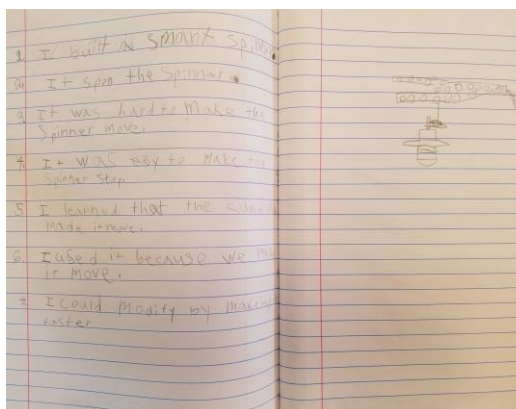 1. I built a smart
2. It spun the Spinner.
3. It was hard to make the
Spinner move.
4. It was esy to make the
Spinner stop
5. I learned that the
made it move.
6. I used it because we
it move.
7. I could modify by
faster